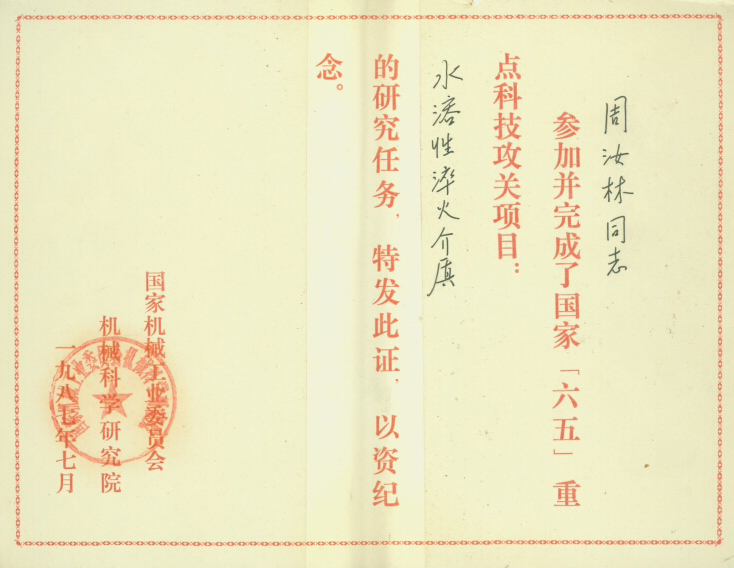 周汝林同志
参加并完成了国家「六五」重
点科技攻关项目：
水溶性淬火介质
的研究任务，特发此证，以资纪
念。
国家机械工业委员会
机械科学研究院
一九八七年七月